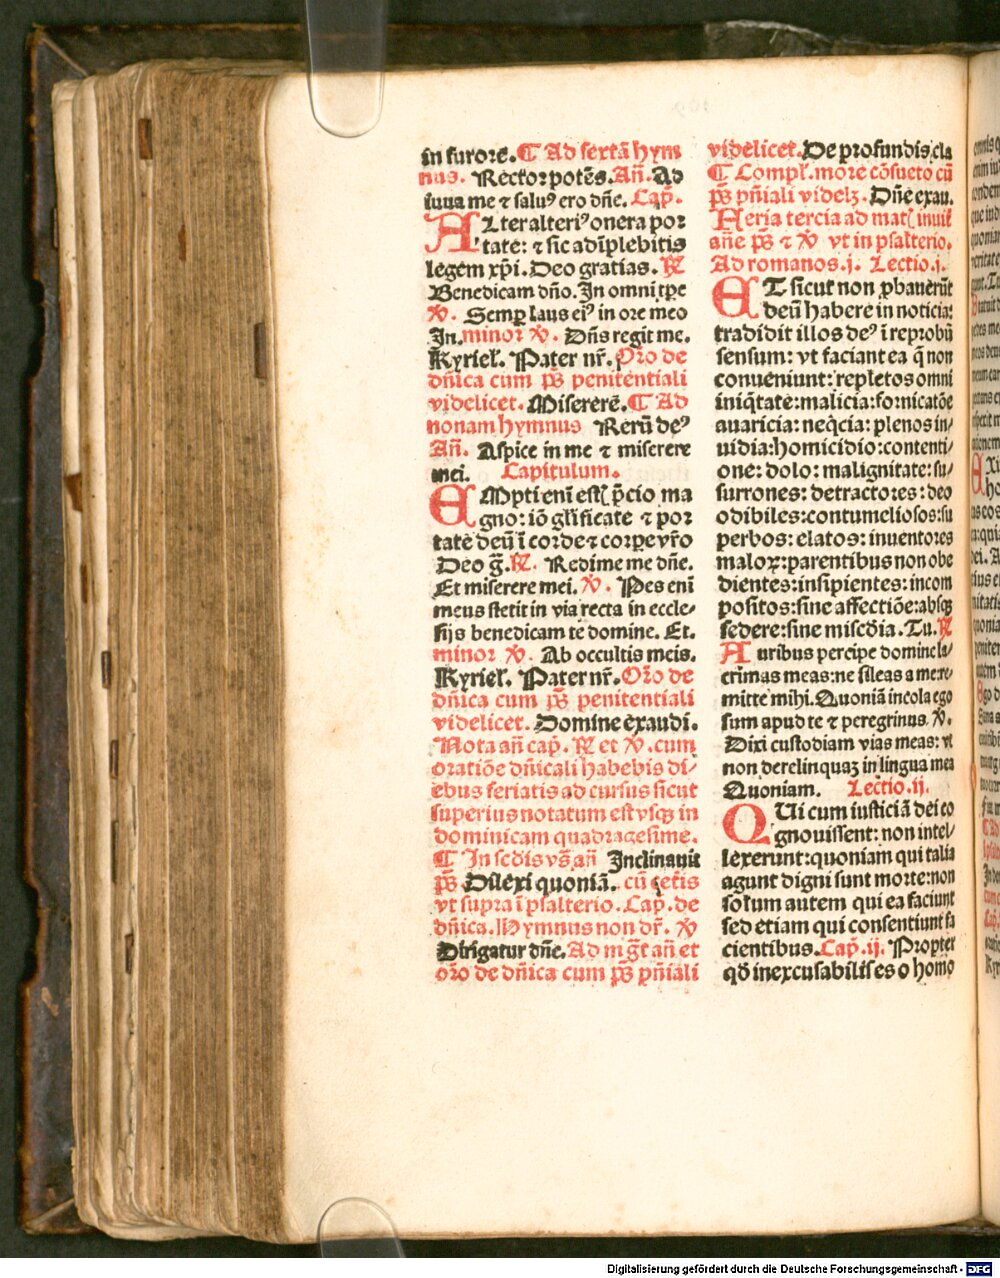 in furore. ¶ Ad sextã hym
nus. Rector potẽs. Añ. Ad
iuua me ⁊ saluꝰ ero dñe. Cap̃.
ALter alteriꝰ onera por
tate: ⁊ sic adĩplebitis
legem xp̃i. Deo gratias. ℟
Benedicam dño. In omni tp̃e
℣. Semꝑ laus eiꝰ in ore meo
In. minor ℣. Dñs regit me.
Kyriel̃. Pater nr̃. Oro de
dñica cum p̃s penitentiali
videlicet. Miserere. ¶ Ad
nonam hymnus Rerũ deꝰ
Añ. Aspice in me ⁊ miserere
mei. Capitulum.
EMpti enĩ est p̃cio ma
gno: iõ gl̃ificate ⁊ por
tate deũ ĩ corde ⁊ corꝑe vr̃o
Deo g̃. ℟. Redime me dñe.
Et miserere mei. ℣. Pes eni
meus stetit in via recta in eccle-
sijs benedicam te domine. Et.
minor ℣. Ab occultis meis.
Kyriel̃. Pater nr̃. Oro de
dñica cum p̃s penitentiali
videlicet. Domine exaudi.
Nota añ cap̃. ℟ et ℣. cum
oratiõe dñicali habebis di-
ebus feriatis ad cursus sicut
superius notatum est vsqꝫ in
dominicam quadragesime.
¶ In scdis vs̃ añ Inclinauit
p̃s Dilexi quoniã. cũ ceteris
vt supra ĩ psalterio. Cap̃. de
dñica. Hymnus non dr̃. ℣
Dirigatur dñe. Ad mg̃t añ et
oro de dñica cum p̃s pñiali
videlicet. De profundis cla
¶ Compl̃. more cõsueto cũ
p̃s pñiali videlꝫ. Dñe exau.
Feria tercia ad mat̃ inuit
añe p̃s ⁊ ℣ vt in psalterio.
Ad romanos. j. Lectio. j.
ET sicut non ꝓbauerũt
deũ habere in noticia:
tradidit illos deꝰ ĩ reprobũ
sensum: vt faciant ea q̃ non
conueniunt: repletos omni
iniq̃tate: malicia: fornicatõe
auaricia: neq̃cia: plenos in-
uidia: homicidio: contenti-
one: dolo: malignitate: su-
surrones: detractores: deo
odibiles: contumeliosos: su
perbos: elatos: inuentores
maloꝝ: parentibus non obe
dientes: insipientes: incom
positos: sine affectiõe: absqꝫ
federe: sine miscdia. Tu. ℟
Auribus percipe domine la-
crimas meas: ne sileas a me: re-
mitte mihi. Quoniã incola ego
sum apud te ⁊ peregrinus. ℣.
Dixi custodiam vias meas: vt
non derelinquaꝫ in lingua mea
Quoniam. Lectio. ij.
QUi cum iusticiã dei co
gnouissent: non intel-
lexerunt: quoniam qui talia
agunt digni sunt morte: non
solum autem qui ea faciunt
sed etiam qui consentiunt fa
cientibus. Cap̃. ij. Propter
qd̃ inexcusabilis es o homo
Digitalisierung gefördert durch die Deutsche Forschungsgemeinschaft - DFG